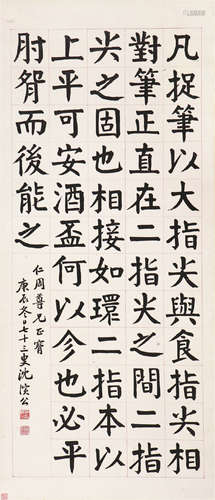 凡捉筆以大指尖與食指尖相
對筆正直在二指尖之間二指
尖之固也相接如環二指本以
上平可安酒盃何以令也必平
肘臂而後能之
仁周尊兄正寶
庚辰冬日七十三叟沈